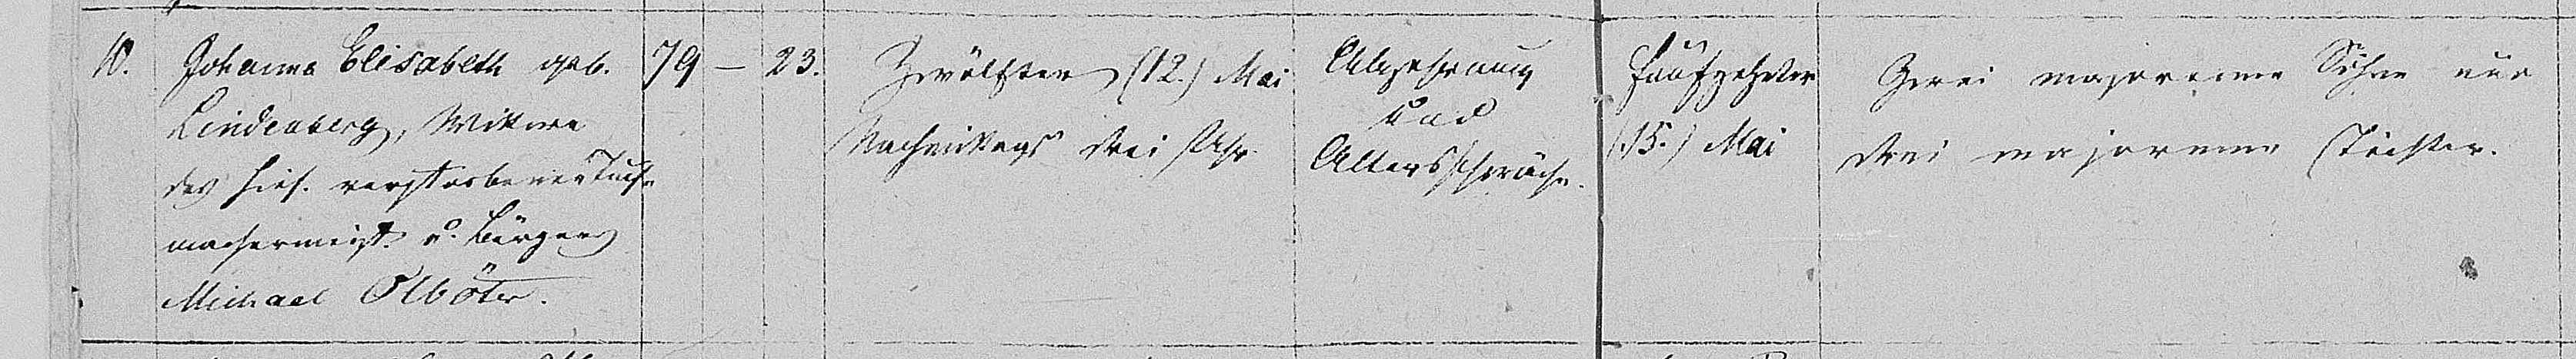 10.
Johanna Elisabeth geb.
Lindenberg, Wittwe
des hies. verstorbenen Tuch-
machermeist. u. Bürgers
Michael Olböter.
79 — 23.
Zwölften (12.) Mai
Nachmittags drei Uhr
Abzehrung
und
Altersschwäche.
Fünfzehnten
(15.) Mai
Zwei majorenne Söhne und
drei majorenne Töchter.